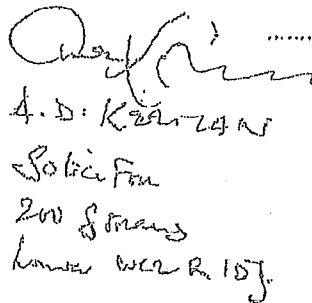 A.D. KEENAN
Solicitor
200 Strand
London WC2R 1DJ.